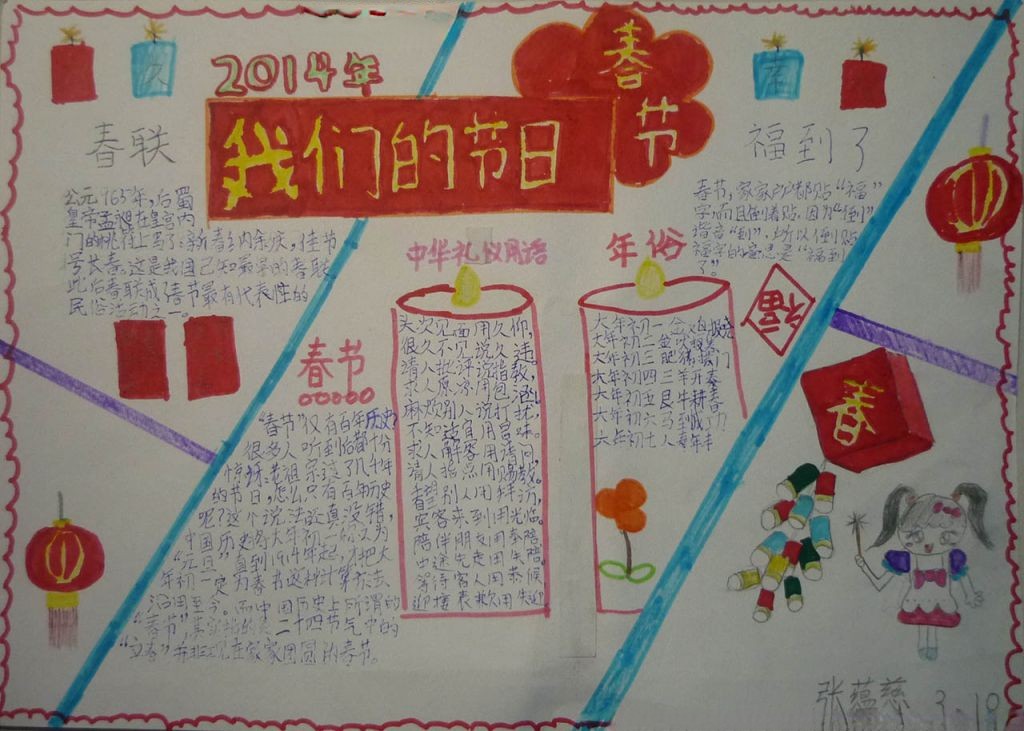 2014年
我们的节日
春
节
春联
公元965年,后蜀
皇帝孟昶在皇宫内
门的桃符上写了:新春纳余庆,佳节
号长春。这是我国已知最早的春联
此后春联成了春节最有代表性的
民俗活动之一。
福到了
春节,家家户户都贴“福”
字,而且倒着贴。因为“倒”
谐音“到”,所以倒贴
福字的意思是“福到
了”。
春节
“春节”仅有百年历史?
很多人听到俗都十分
惊讶:老祖宗过了几千年
的节日,怎么只有百年历史
呢?这个说法故真没错,
中国历史各大年初一的么为
“元旦”直到1914年起,才把大
年初一定为春节这种计算方法
沿用至今。而中国历史上所谓的
“春节”其实指的是二十四节气中的
“立春”并非现在家家团圆的春节。
中华礼仪用语
头次见面用久仰,
很久不见说久违。
请人批评说指教,
求人原凉用包涵,
麻烦别人说打扰,
不知适宜用冒昧。
求人解答用请问,
请人指点用赐教。
看望别人用拜访,
宾客来到用光临。
陪伴朋友用奉陪
中途先走用失陪
等待客人用恭候
迎接表歉用失迎
年俗
大年初一金鸡报
大年初二
大年初三肥猪拱门
大年初四三羊开泰
大年初五艮牛耕春
大年初六马到成功
大年初七人寿年丰
福
春
张蕴慈 3.10